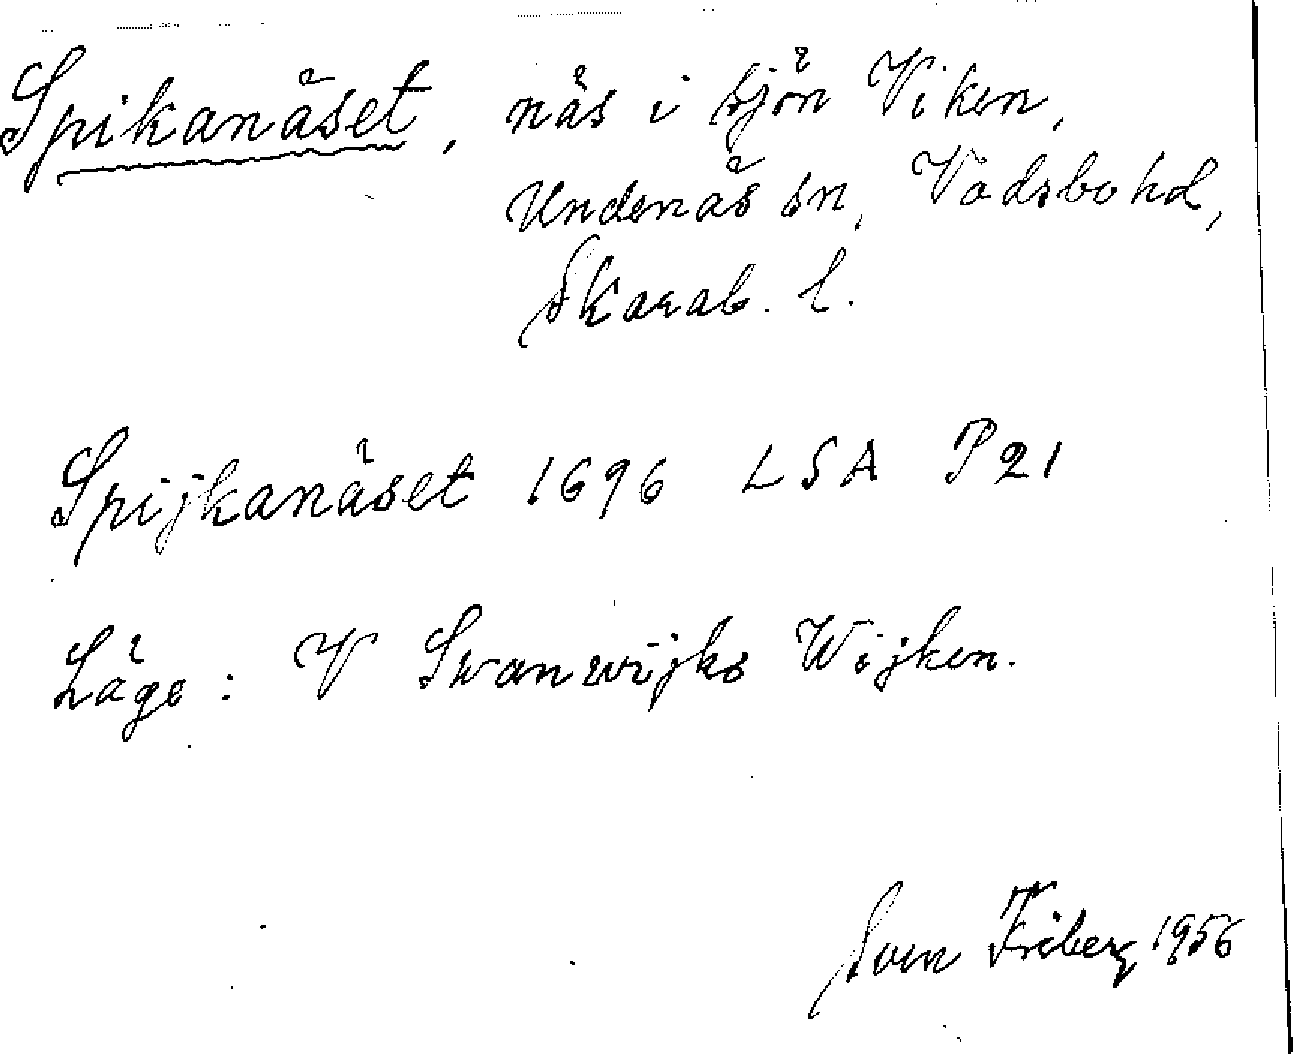 Spikanäset, näs i sjön Viken,
Undenäs sn, Vadsbo hd,
Skarab. l.
Spijkanäset 1696 LSA P21
Läge: V Swanwijks Wijken.
Sven Friberg 1956